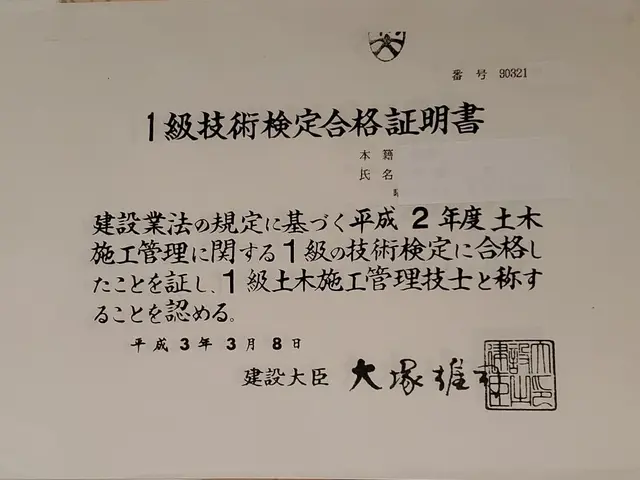 番号 90321
1級技術検定合格証明書
本籍
氏名
建設業法の規定に基づく平成2年度土木
施工管理に関する1級の技術検定に合格し
たことを証し、1級土木施工管理技士と称す
ることを認める。
平成3年3月8日
建設大臣 大塚雄司